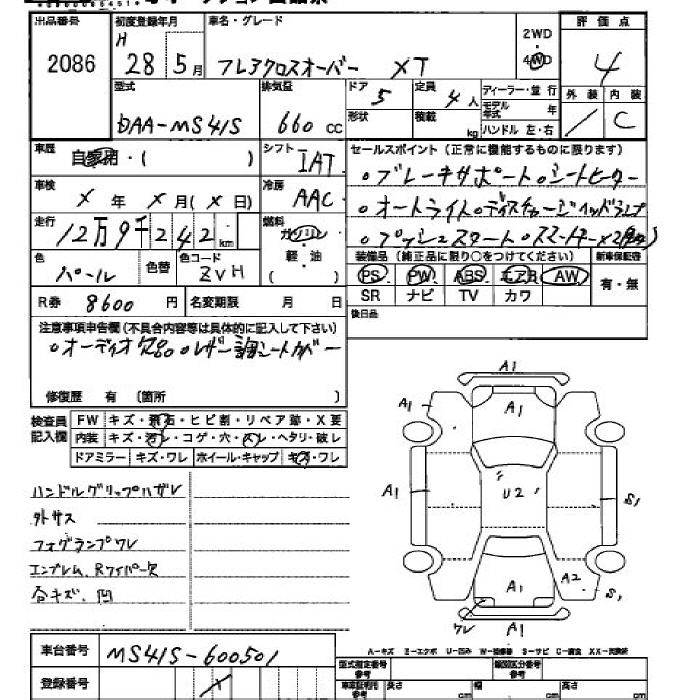 出品番号 初度登録年月 車名・グレード 評価点
2086 H 28 5月 フレアクロスオーバー XT 2WD 4WD 4
型式 排気量 ドア 5 定員 4人 ディーラー・並行 外装 内装
DAA-MS41S 660 cc 形状 積載 kg モデル年式 年 C
ハンドル 左・右
車歴 自家用・( ) シフト IAT セールスポイント(正常に機能するものに限ります)
車検 X年 X月(X日) 冷房 AAC 。ブレーキサポート。シートヒーター
走行 12万9千242 km 燃料 ガソリン 。オートライト。ディスチャージヘッドランプ
軽・油 。プッシュスタート。スマートキーx2
色 パール 色替 色コード ZVH ( ) 装備品(純正品に限り○をつけてください) 新車保証書
PS PW ABS エアB AW 有・無
R券 8600 円 名変期限 月 日 SR ナビ TV カワ
注意事項申告欄(不具合内容等は具体的に記入して下さい) 後日品
。オーディオ欠品。レザー調シートカバー
修復歴 有 〔箇所 〕
検査員記入欄 FW キズ・飛石・ヒビ割・リペア跡・X要
内装 キズ・汚レ・コゲ・穴・スレ・ヘタリ・破レ
ドアミラー キズ・ワレ ホイール・キャップ キズ・ワレ
ハンドルグリップハガレ
外サス
フォグランプワレ
エンブレム、Rワイパー欠
各キズ、凹
A1
A1 A1
A1 U2 S1
A1 A2 S1
ワレ A1
A-キズ E-エクボ U-凹み W-補修跡 S-サビ C-腐食 XX-交換済
車台番号 MS41S-600501
登録番号 X
型式指定番号 参考 類別区分番号 参考
車庫証明用 参考 長さ cm 幅 cm 高さ cm